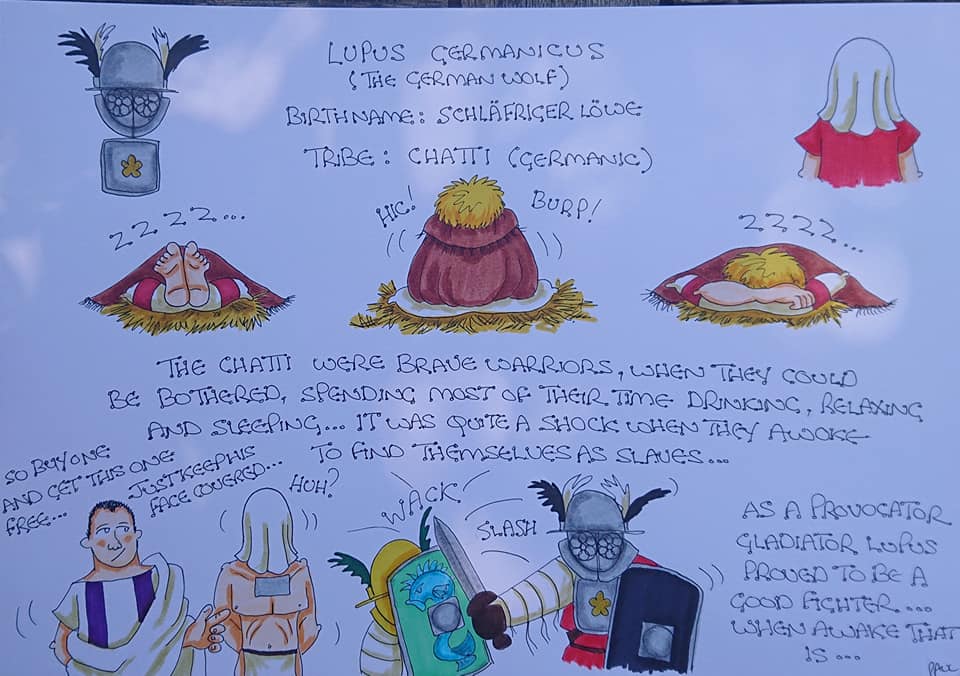 LUPUS GERMANICUS
(THE GERMAN WOLF)
BIRTHNAME: SCHLÄFRIGER LÖWE
TRIBE: CHATTI (GERMANIC)
ZZZZ...
HIC!
BURP!
ZZZZ...
THE CHATTI WERE BRAVE WARRIORS, WHEN THEY COULD
BE BOTHERED, SPENDING MOST OF THEIR TIME DRINKING, RELAXING
AND SLEEPING... IT WAS QUITE A SHOCK WHEN THEY AWOKE
TO FIND THEMSELVES AS SLAVES...
SO BUY ONE
AND GET THIS ONE
FREE...
JUST KEEP HIS
FACE COVERED...
HUH?
WACK
SLASH
AS A PROVOCATOR
GLADIATOR LUPUS
PROVED TO BE A
GOOD FIGHTER...
WHEN AWAKE THAT
IS...